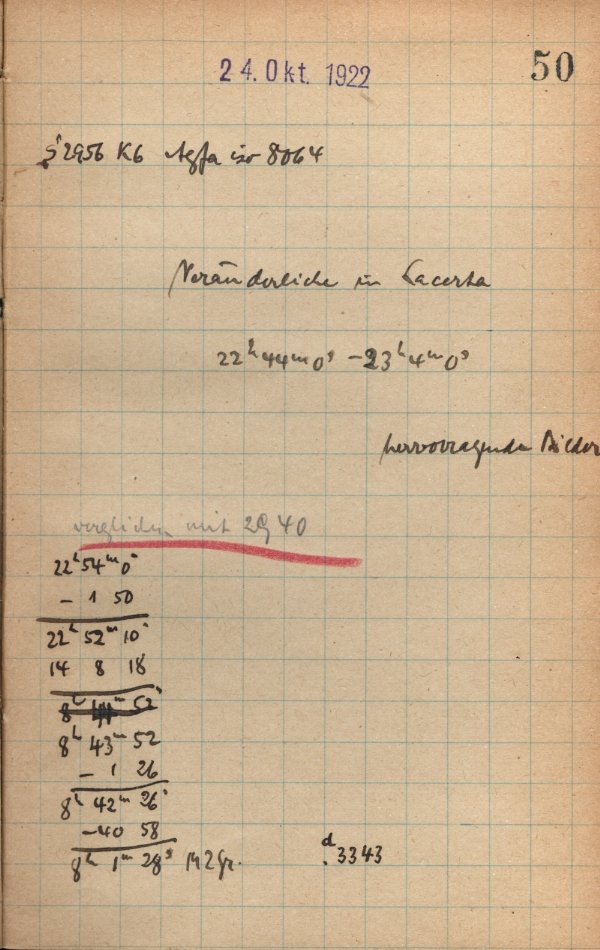 50
24. Okt. 1922
S 2956 K6 Agfa iso 8064
Veränderliche in Lacerta
22h 44m 0s – 23h 4m 0s
hervorragende Bilder
verglichen mit 2940
22h 54m 0s
– 1 50
22h 52m 10s
14 8 18
8h 44m 52s
8h 43m 52
– 1 26
8h 42m 26s
–40 58
8h 1m 28s M2Gr.
d
.3343